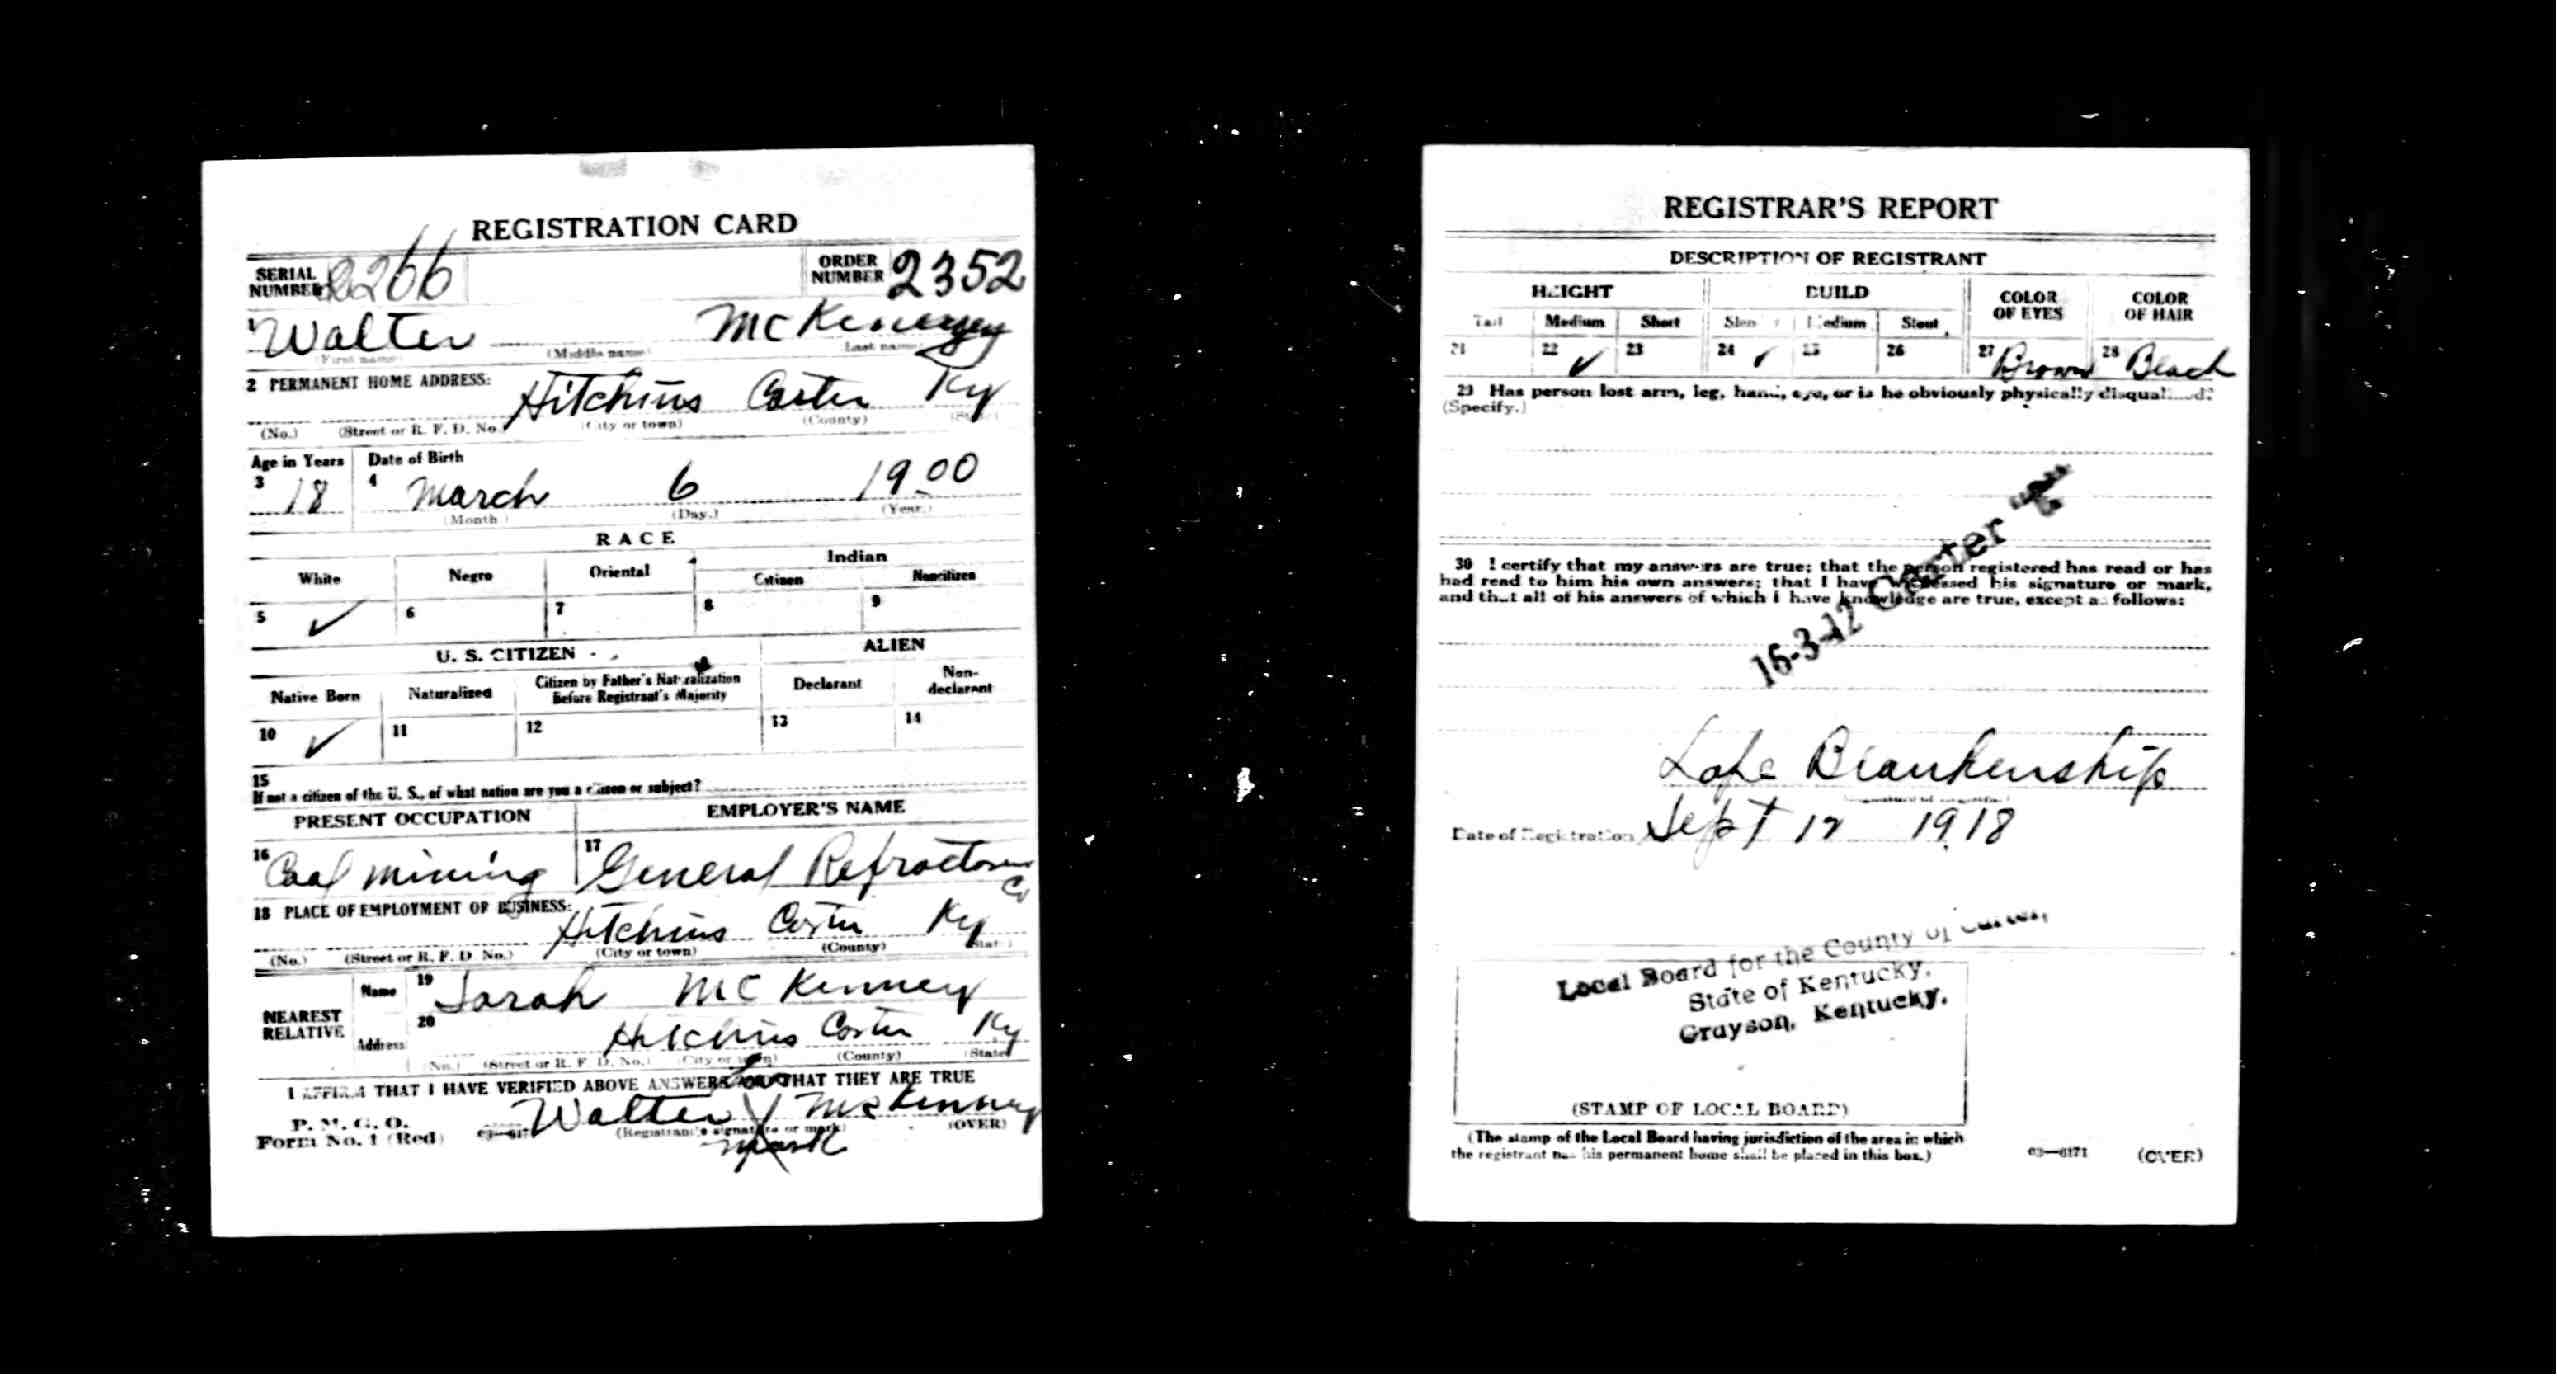 REGISTRATION CARD
SERIAL NUMBER 2266 ORDER NUMBER 2352
1 Walter McKenney
(First name) (Middle name) Last name
2 PERMANENT HOME ADDRESS:
Hitchins Carter Ky
(No.) (Street or R. F. D. No.) (City or town) (County) (State)
Age in Years Date of Birth
3 18 4 March 6 1900
(Month) (Day.) (Year.)
RACE
White Negro Oriental Indian
Citizen Noncitizen
5 ✓ 6 7 8 9
U. S. CITIZEN ALIEN
Native Born Naturalized Citizen by Father's Naturalization Before Registrant's Majority Declarant Non-declarant
10 ✓ 11 12 13 14
15
If not a citizen of the U. S., of what nation are you a citizen or subject?
PRESENT OCCUPATION EMPLOYER'S NAME
16 Coal mining 17 General Refractories Co
18 PLACE OF EMPLOYMENT OR BUSINESS:
Hitchins Carter Ky
(No.) (Street or R. F. D. No.) (City or town) (County) (State)
NEAREST RELATIVE Name 19 Sarah McKinney
Address 20 Hitchins Carter Ky
(No.) (Street or R. F. D. No.) (City or town) (County) (State)
I AFFIRM THAT I HAVE VERIFIED ABOVE ANSWERS THAT THEY ARE TRUE
P. M. G. O.
Form No. 1 (Red) 03-6171 Walter X McKinney
(Registrant's signature or mark) (OVER)
mark
REGISTRAR'S REPORT
DESCRIPTION OF REGISTRANT
HEIGHT BUILD COLOR OF EYES COLOR OF HAIR
Tall Medium Short Slender Medium Stout
21 22 ✓ 23 24 ✓ 25 26 27 Brown 28 Black
29 Has person lost arm, leg, hand, eye, or is he obviously physically disqualified?
(Specify.)
30 I certify that my answers are true; that the person registered has read or has
had read to him his own answers; that I have witnessed his signature or mark,
and that all of his answers of which I have knowledge are true, except as follows:
16-3-12 Carter
Blankenship
Date of Registration Sept 12 1918
Local Board for the County of Carter,
State of Kentucky,
Grayson, Kentucky.
(STAMP OF LOCAL BOARD)
(The stamp of the Local Board having jurisdiction of the area in which
the registrant has his permanent home shall be placed in this box.)
03-6171 (OVER)